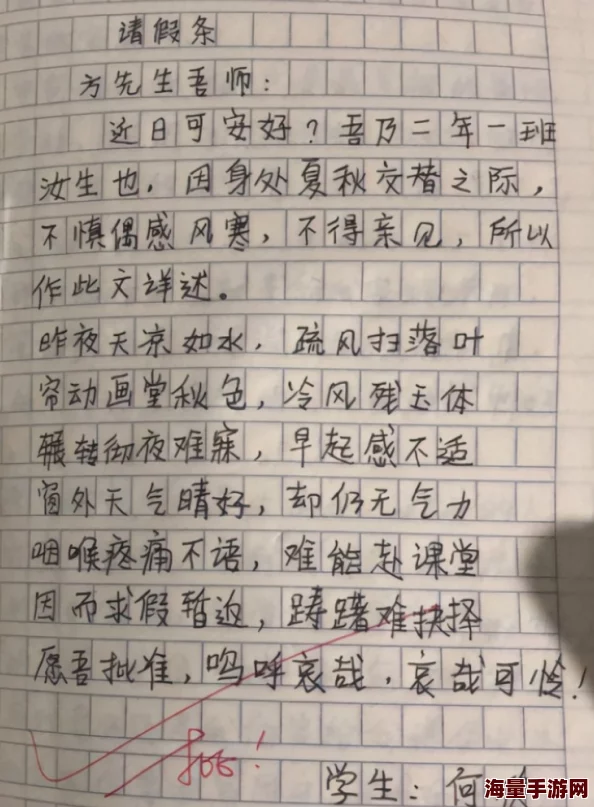 请假条
方先生吾师：
近日可安好？吾乃二年一班
汝生也，因身处夏秋交替之际，
不慎偶感风寒，不得亲见，所以
作此文详述。
昨夜天凉如水，疏风扫落叶
帘动画堂秋色，冷风残玉体
辗转彻夜难寐，早起感不适
窗外天气晴好，却仍无气力
咽喉疼痛不语，难能赴课堂
因而求假暂返，踌躇难抉择
愿吾批准，呜呼哀哉，哀哉可怜！
学生：何
海量手游网